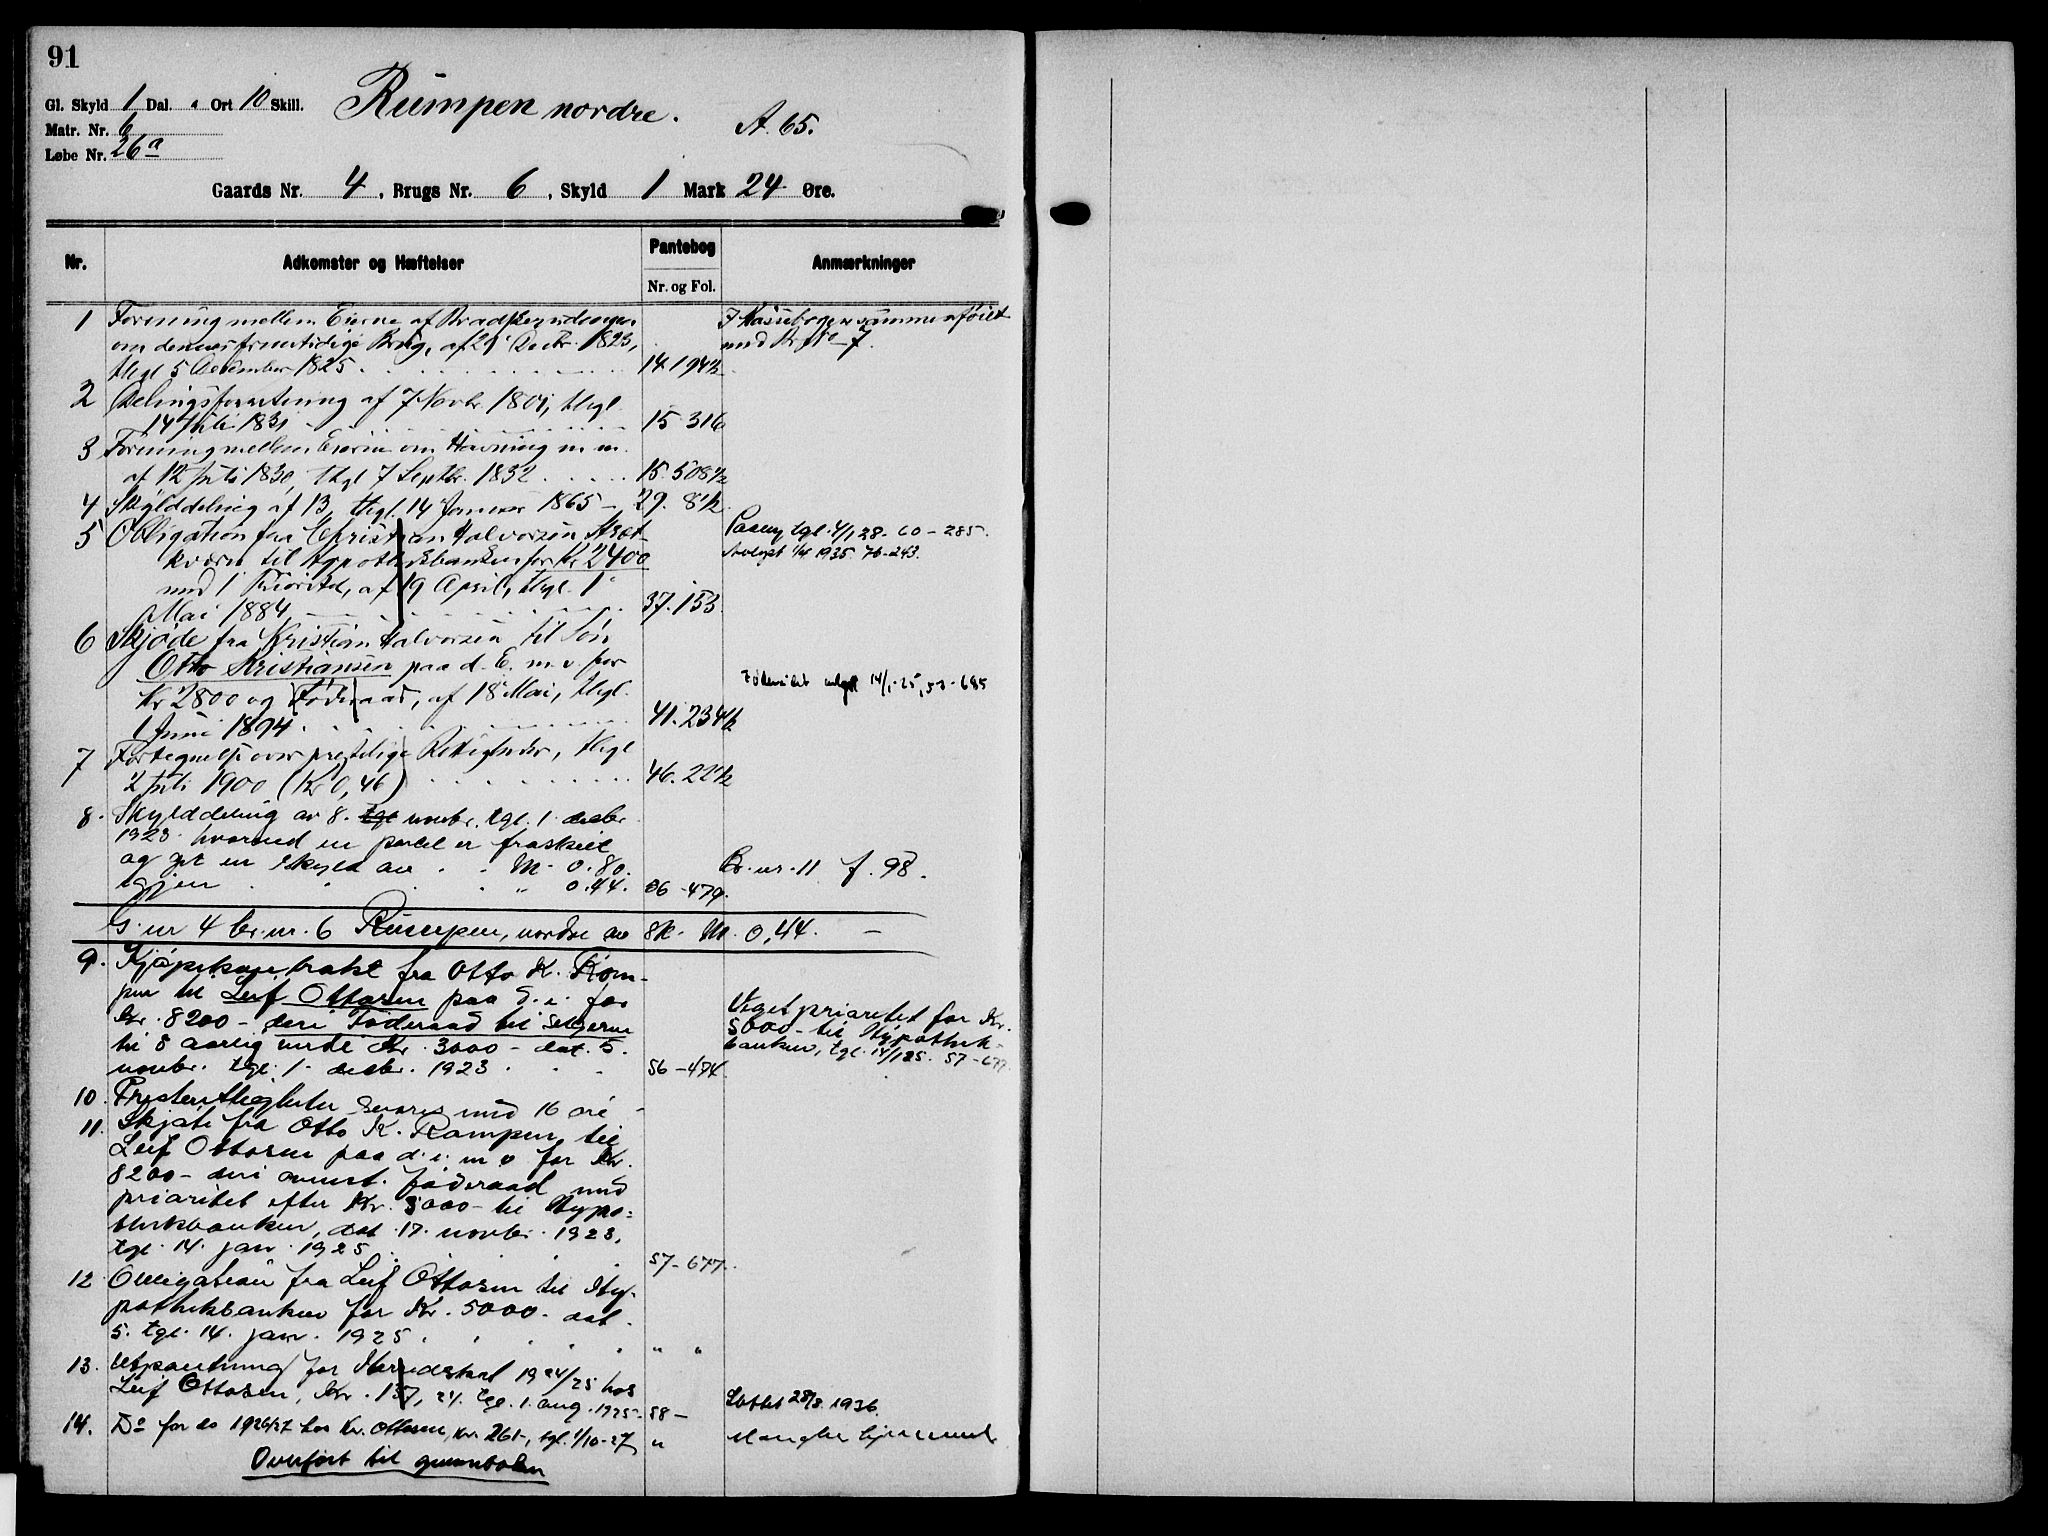 91
Gl. Skyld 1 Dal. " Ort 10 Skill.
Rumpen nordre.
A. 65.
Matr. Nr. 6
Løbe Nr. 26a
Gaards Nr. 4, Brugs Nr. 6, Skyld 1 Mark 24 Øre.
Nr.
Adkomster og Hæftelser
Pantebog
Nr. og Fol.
Anmærkninger
1 Forening mellem Eierne af
om dennes fremtidige Brug, af 21 Decbr. 1823,
thgl 5 December 1825 14.194½
sammenføiet
med Br No 7.
2 Delingsforretning af 7 Novbr. 1801, thgl.
14 Juli 1831 15 316
3 Forening mellem Eierne om Havning m. m.
af 12 Juli 1830, thgl 7 Septbr. 1832 15.508½
4 Skylddeling af 13, thgl. 14 Januar 1865 29. 8½
5 Obligation fra Christian Halvorsen
til Hypothekbanken for Kr 2400
med 1 Prioritet, af 19 April, thgl. 1
Mai 1884 37.153.
tgl. 4/1 28. 60-285.
Avlyst 1935. 76-243.
6 Skjøde fra Kristian Halvorsen til Søn
Otto Kristiansen paa d. E. m. v. for
Kr 2800 og Føderaad, af 18 Mai, thgl.
1 Juni 1894 41.234½
14/1-25, 57-685
7 Fortegnelse over prestelige Rettigheder, thgl
2 Juli 1900 (Kr 0,46) 46.22½
8. Skylddeling av 8. tgl novbr. tgl. 1. decbr.
1923 hvorved en parcel er fraskilt
og git en skyld av M. 0.80.
igjen " 0.44. 56-479.
Br. nr. 11 f. 98.
G. nr 4 br. nr. 6 Rumpen, nordre av sk. M. 0,44.
9. Kjøpekontrakt fra Otto K. Rom-
pen til Leif Ottosen paa d. e. for
Kr. 8200 - deri Føderaad til selgerne
til 5 aarlig verdi Kr. 3000 - dat. 5.
novbr. tgl. 1. decbr. 1923 56-474.
Veget prioritet for Kr.
5000 - til Hypothek-
banken, tgl. 14/1 25. 57-677.
10. Presterettigheter svares med 16 øre
11. Skjøte fra Otto K. Rampen til
Leif Ottosen paa d. e. m v for Kr.
8200 - deri føderaad med
prioritet efter Kr. 5000 - til Hypo=
thekbanken, dat. 17. novbr. 1923,
tgl. 14. jan. 1925 57-677.
12. Obligation fra Leif Ottosen til Hy-
pothekbanken for Kr. 5000 - dat.
5. tgl. 14. jan. 1925 " "
13. Utpantning for Herredskat 1924/25 hos
Leif Ottosen, Kr. 137,24. tgl. 1. aug. 1925 58-
Slettet 28/8 1936.
14. Do for do 1926/27 hos Kr. Ottosen, Kr. 261-, tgl. 1/10-27 "
Mangler hjemmel
Overført til grunnboken